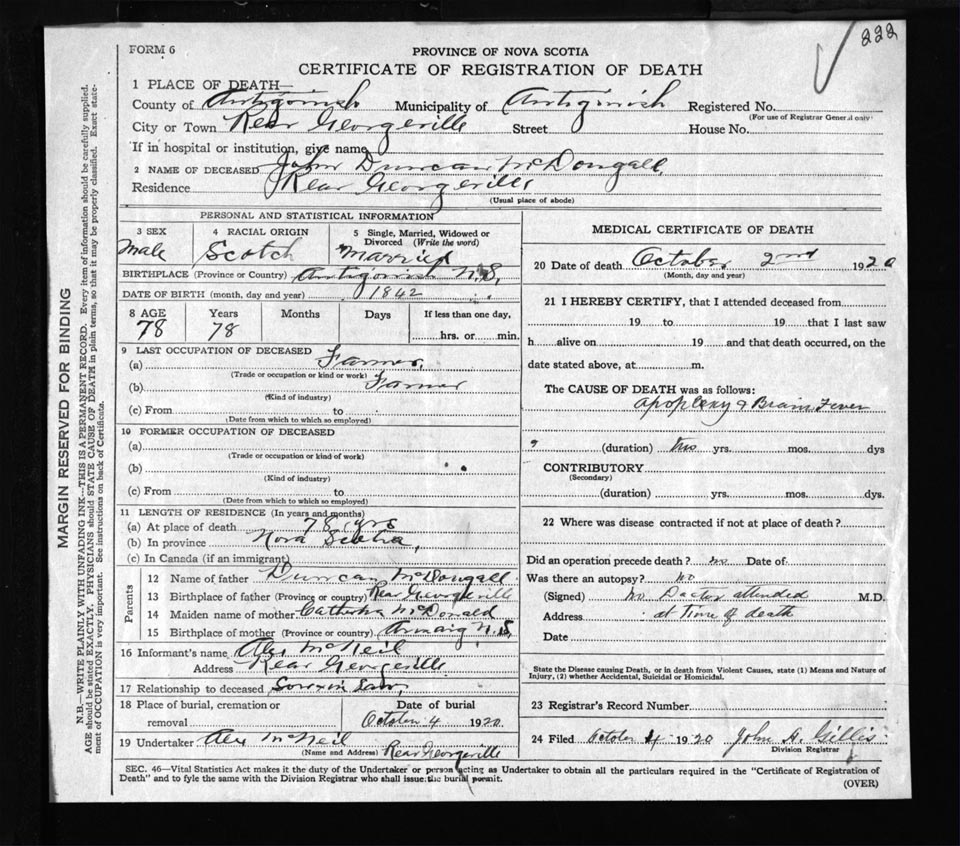 222
FORM 6
PROVINCE OF NOVA SCOTIA
CERTIFICATE OF REGISTRATION OF DEATH
1 PLACE OF DEATH—
County of Antigonish Municipality of Antiginish Registered No.
(For use of Registrar General only)
City or Town Rear Georgeville Street House No.
If in hospital or institution, give name
2 NAME OF DECEASED John Duncan McDougall
Residence Rear Georgeville
(Usual place of abode)
PERSONAL AND STATISTICAL INFORMATION
3 SEX 4 RACIAL ORIGIN 5 Single, Married, Widowed or Divorced (Write the word)
Male Scotch Married
BIRTHPLACE (Province or Country) Antigonish N.S.
DATE OF BIRTH (month, day and year) 1842
8 AGE Years Months Days If less than one day,
78 78 hrs. or min.
9 LAST OCCUPATION OF DECEASED
(a) Farmer
(Trade or occupation or kind or work)
(b) Farmer
(Kind of industry)
(c) From to
(Date from which to which so employed)
10 FORMER OCCUPATION OF DECEASED
(a)
(Trade or occupation or kind of work)
(b)
(Kind of industry)
(c) From to
(Date from which to which so employed)
11 LENGTH OF RESIDENCE (In years and months)
(a) At place of death 78 yrs
(b) In province Nova Scotia,
(c) In Canada (if an immigrant)
Parents
12 Name of father Duncan McDougall
13 Birthplace of father (Province or country) Rear Georgeville
14 Maiden name of mother McDonald
15 Birthplace of mother (Province or country) N.S.
16 Informant's name Alex McNeil
Address Rear Georgeville
17 Relationship to deceased Son in Law,
18 Place of burial, cremation or removal Date of burial
October 4 1920
19 Undertaker Alex McNeil
(Name and Address) Rear Georgeville
MEDICAL CERTIFICATE OF DEATH
20 Date of death October 2nd 1920
(Month, day and year)
21 I HEREBY CERTIFY, that I attended deceased from
19 to 19 that I last saw
h alive on 19 and that death occurred, on the
date stated above, at m.
The CAUSE OF DEATH was as follows:
apoplexy & Brain Fever
(duration) two yrs. mos. dys
CONTRIBUTORY
(Secondary)
(duration) yrs. mos. dys.
22 Where was disease contracted if not at place of death?
Did an operation precede death? no Date of
Was there an autopsy? no
(Signed) No Doctor attended M.D.
Address at time of death
Date
State the Disease causing Death, or in death from Violent Causes, state (1) Means and Nature of
Injury, (2) whether Accidental, Suicidal or Homicidal.
23 Registrar's Record Number
24 Filed October 4 1920 John H. Gillis
Division Registrar
SEC. 46—Vital Statistics Act makes it the duty of the Undertaker or person acting as Undertaker to obtain all the particulars required in the "Certificate of Registration of
Death" and to fyle the same with the Division Registrar who shall issue the burial permit.
(OVER)
MARGIN RESERVED FOR BINDING
N.B.—WRITE PLAINLY WITH UNFADING INK—THIS IS A PERMANENT RECORD. Every item of information should be carefully supplied.
AGE should be stated EXACTLY. PHYSICIANS should STATE CAUSE OF DEATH in plain terms, so that it may be properly classified. Exact state-
ment of OCCUPATION is very important. See instructions on back of Certificate.